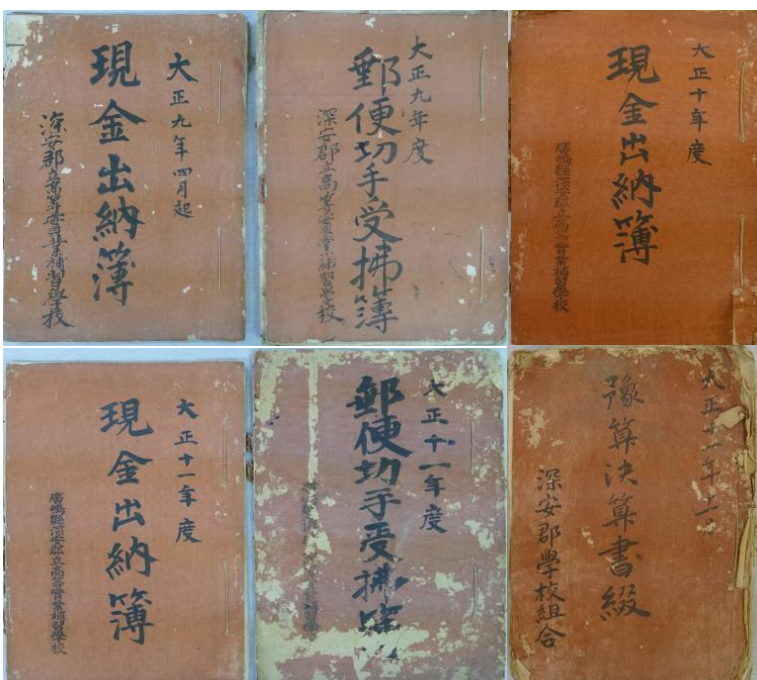 大正九年四月起
現金出納簿
深安郡立高等実業補習學校
大正九年度
郵便切手受拂簿
深安郡立高等實業補習學校
大正十年度
現金出納簿
廣嶋縣深安郡立高等實業補習學校
大正十一年度
現金出納簿
廣嶋縣深安郡立高等實業補習學校
大正十一年度
郵便切手受拂簿
大正十一年十一月
豫算決算書綴
深安郡學校組合